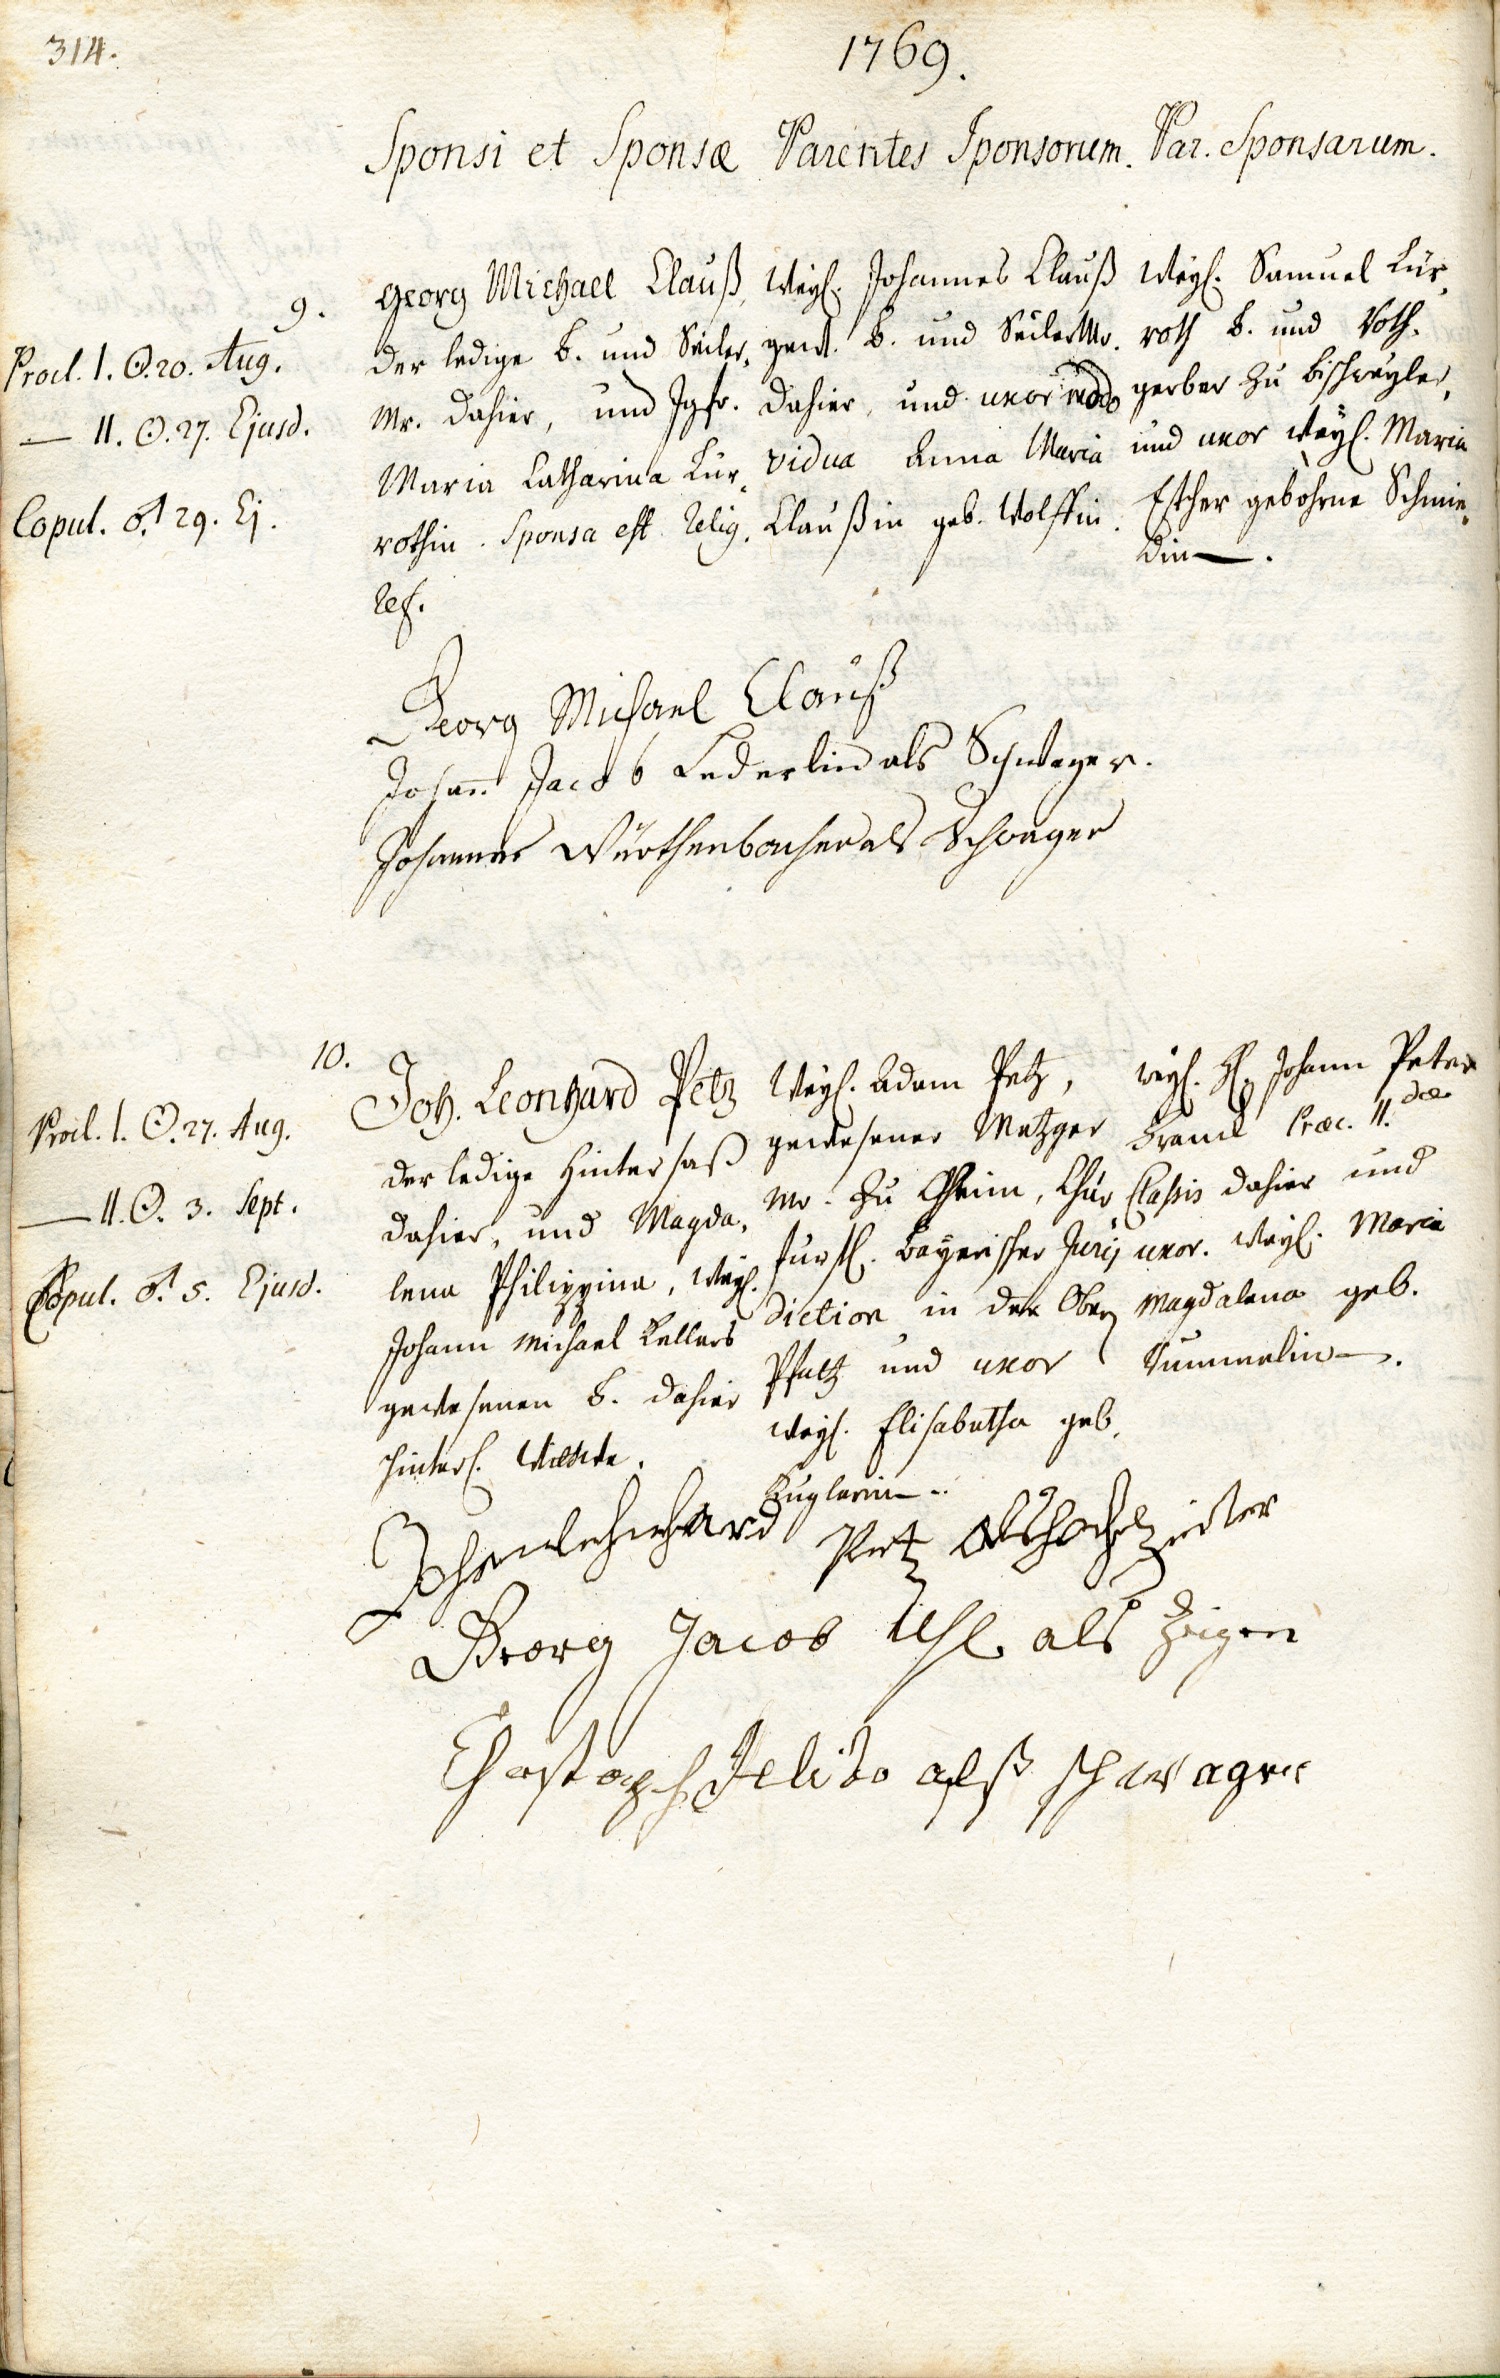 314.
1769.
Sponsi et Sponsæ Parentes Sponsorum. Par. Sponsarum.
9.
Procl. I. ☉. 20. Aug.
— II. ☉. 27. Ejusd.
Copul. ♂ 29. Ej.
Georg Michael Clauß,
der ledige B. und Seiler,
Mr. dahier, und Jgfr.
Maria Catharina Kur,
rothin. Sponsa est Relig.
Ref.
Weyl. Johannes Clauß
gew. B. und Seiler Mr.
dahier, und uxor modo
vidua Anna Maria
Claußin geb. Wolffin.
Weyl. Samuel Kür,
roth B. und Roth-
gerber zu Bischweyler,
und uxor weyl. Maria
Esther gebohrne Schmie,
din —.
Georg Michael Clauß
Johann Jacob Lederlin als Schwager.
Johannes als Schwager
10.
Procl. I. ☉. 27. Aug.
— II. ☉. 3. Sept.
Copul. ♂. 5. Ejusd.
Joh. Leonhard Petz
der ledige Hintersaß
dahier, und Magda,
lena Philippina, weyl.
Johann Michael Kellers
gewesenen B. dahier
hinterl. Wittwe.
Weyl. Adam Petz,
gewesener Metzger
Mr. zu Chur
fürstl. Bayerischer Juris
diction in der Ober
Pfaltz und uxor
weyl. Elisabetha geb.
Kuglerin —.
weyl. H. Johann Peter
Franck Præc. II.dæ
Classis dahier und
uxor. weyl. Maria
Magdalena geb.
Kummerlin —.
Petz als hochzeiter
Georg Jacob Uhl als Zeigen
Christoph alß schwager